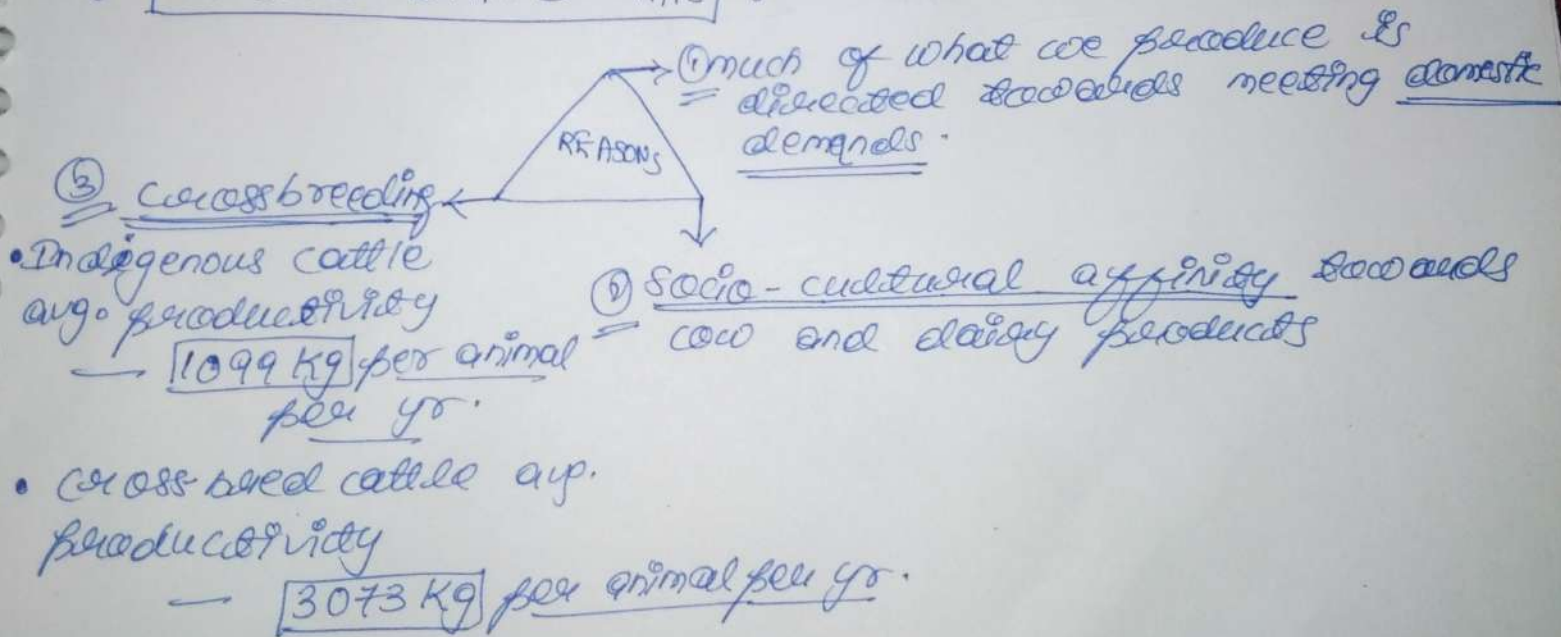 ① much of what we produce is
directed towards meeting domestic
demands.
REASONS
② Socio-cultural affinity towards
cow and dairy products
③ Crossbreeding
• Indigenous cattle
avg. productivity
— 1099 Kg per animal
per yr.
• cross-breed cattle avg.
productivity
— 3073 Kg per animal per yr.